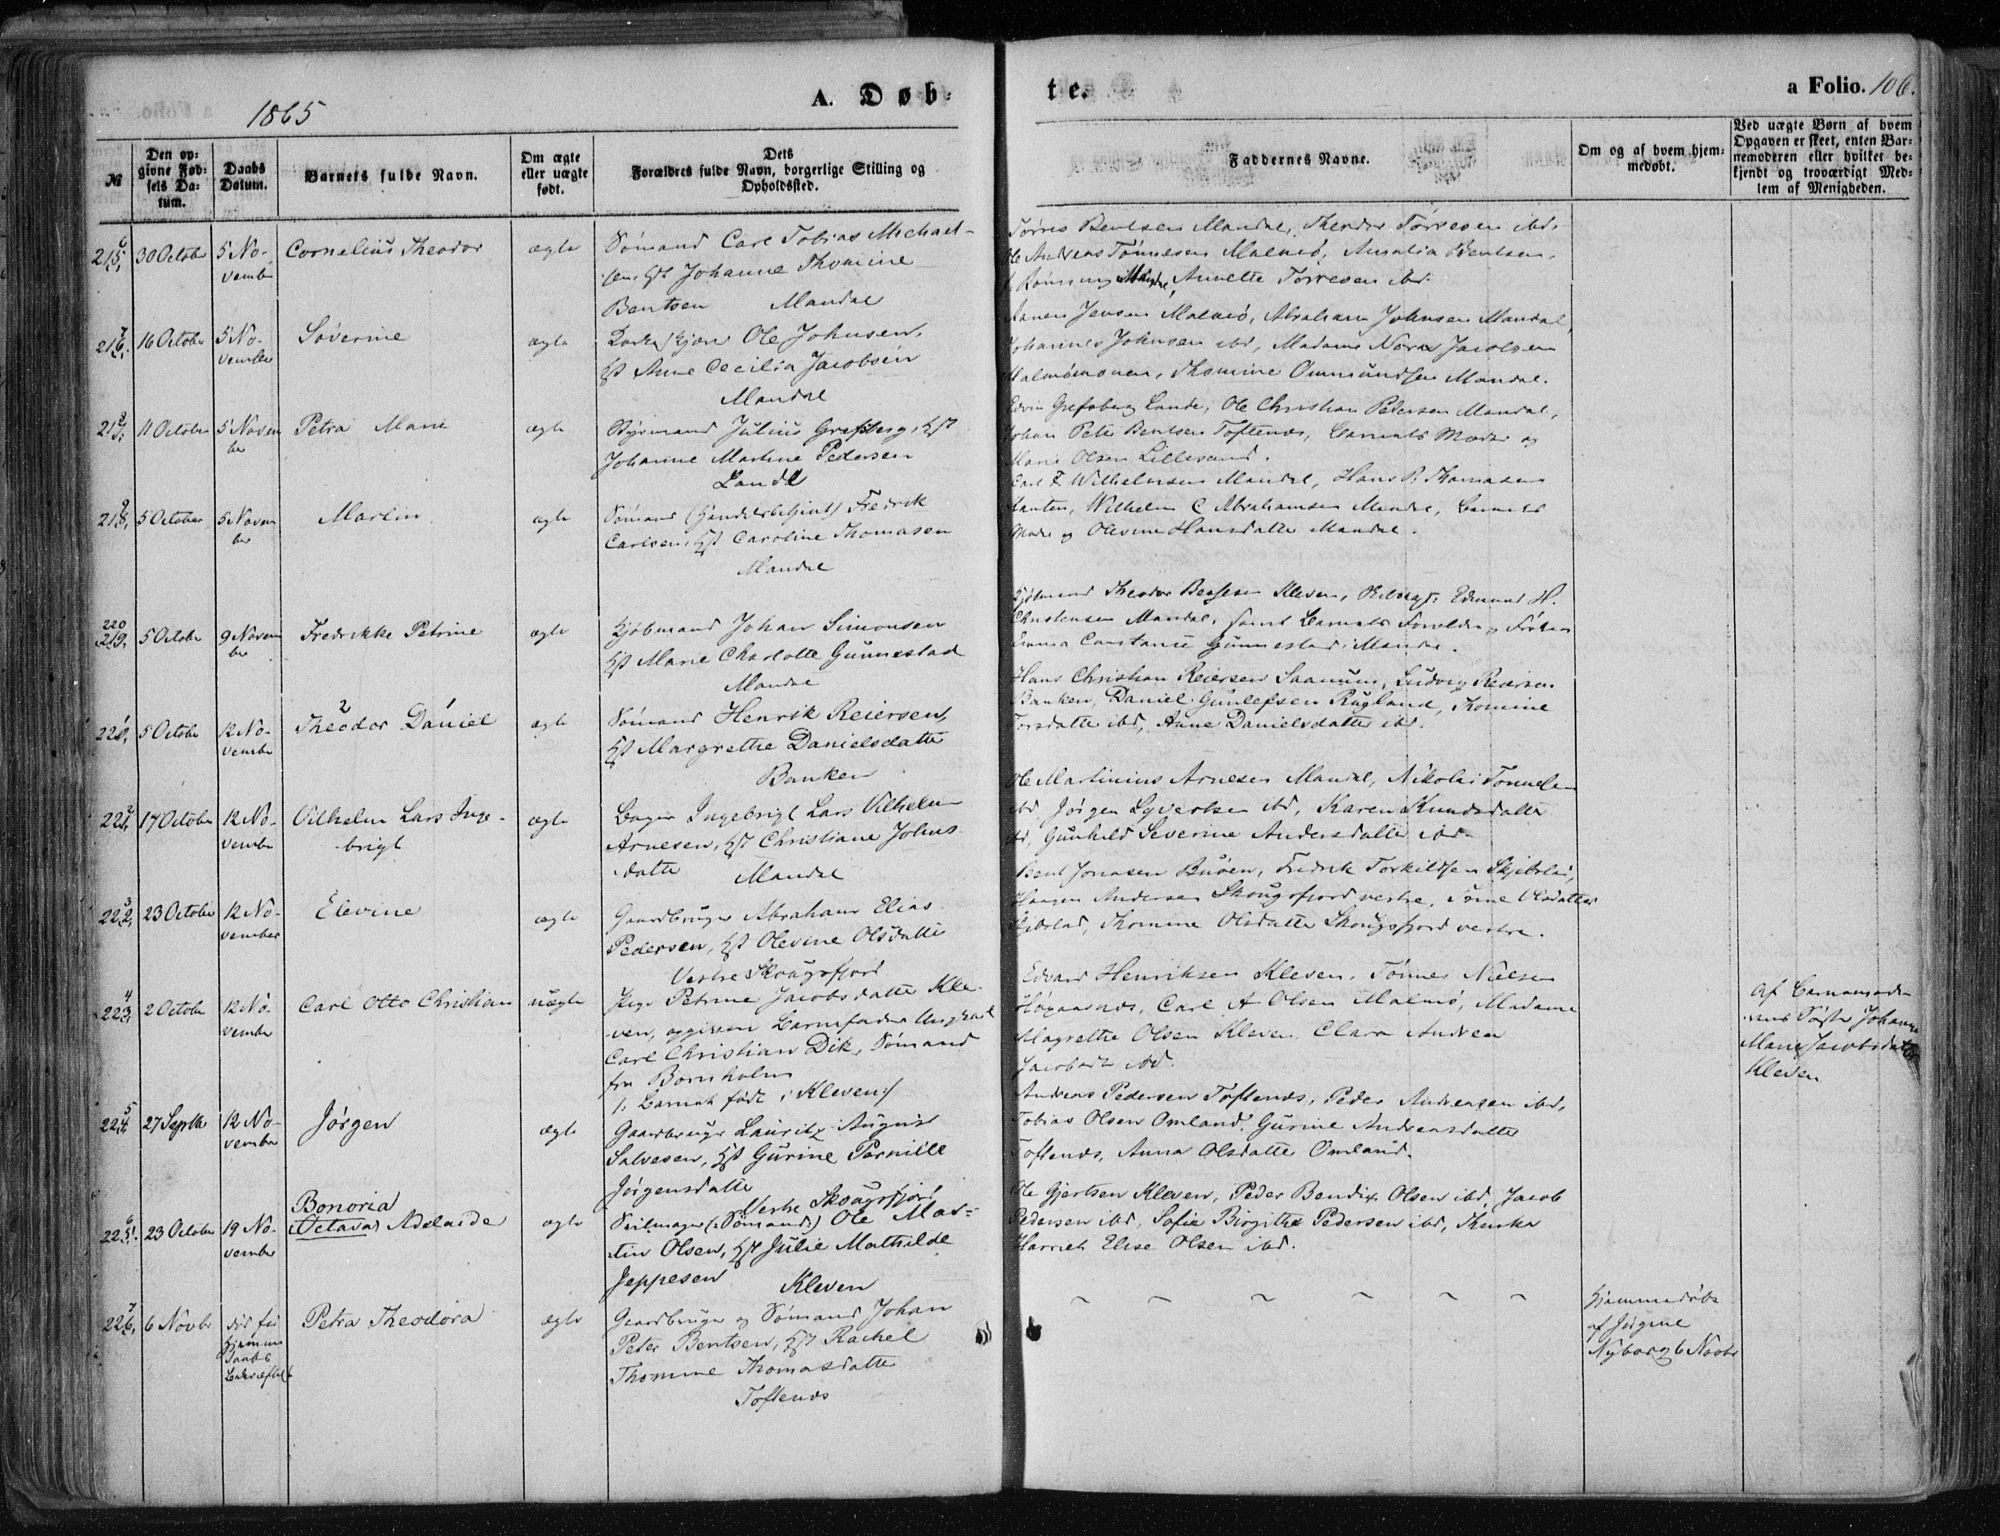 1865
A. Døb-
te.
a Folio. 106.
№
Den op-
givne Fød-
sels Da-
tum.
Daabs
Datum.
Barnets fulde Navn.
Om ægte
eller uægte
født.
Dets
Forældres fulde Navn, borgerlige Stilling og
Opholdssted.
Faddernes Navne.
Om og af hvem hjem-
medøbt.
Ved uægte Børn af hvem
Opgaven er skeet, enten Bar-
nemoderen eller hvilket be-
kjendt og troværdigt Med-
lem af Menigheden.
6
215,
30 October
5 No-
vember
Cornelius Theodor
ægte
Sømand Carl Tobias Michael-
sen, Hst Johanne Thomine
Bentsen Mandal
Tørres Bentsen Mandal, Theodor Tørresen ibd,
Ole Andreas Tønnesen Malmø, Auralia Bentsen,
Rønning Mandal, Annette Torresen ibd.
7
216,
16 October
5 No-
vember
Søverine
ægte
Ole Johnsen,
Hst Anne Cecilia Jacobsen
Mandal
Jensen Malmø, Abraham Johnsen Mandal,
Johannes Johnsen ibd, Madame Jacobsen
Malmømonen, Thomine Ommundsen Mandal.
8
217,
11 October
5 Novem
ber
Petra Marie
ægte
Styrmand Julius Grefsberg, Hst
Johanne Martine Pedersen
Lande
Edvin Grefsberg Lande, Ole Christian Pedersen Mandal,
Johan Peter Bentsen Toftenæs, Barnets Moder og
Marie Olsen Lillesand.
9
218,
5 October
5 Novem
ber
Martin
ægte
Sømand Fredrik
Carlsen, Hst Caroline Thomasen
Mandal
Carl F Wilhelmsen Mandal, Hans P. Thomasen
Wilhelm C Abrahamsen Mandal, Barnets
Moder og Olevine Hansdatte Mandal.
220
219,
5 October
9 Novem
ber
Fredrikke Petrine
ægte
Kjøbmand Johan Simonsen
Hst Marie Charlotte Gunnestad
Mandal
Kjøbmand Theodor Kleven, Edmund H.
Christensen Mandal, samt Barnets Forældre og Frøken
Emma Constance Gunnestad i Mandal.
1
220,
5 October
12 No-
vember
2
Theodor
1
Daniel
ægte
Sømand Henrik Reiersen,
Hst Margrethe Danielsdatte
Banken
Hans Christian Reiersen Saanum, Ludvig Reiersen
Banken, Daniel Gunlefsen Rugland, Thomine
Torsdatte ibd, Anne Danielsdatte ibd.
2
221,
17 October
12 No-
vember
Vilhelm Lars Inge-
brigt
ægte
Bager Ingebrigt Lars Vilhelm
Arnesen, Hst Christiane Johns-
datte Mandal
Ole Martinius Arnesen Mandal, Nikolai Tønnesen
ibd, Jørgen Syvertsen ibd, Karen Knudsdatte
ibd, Gunhild Severine Andersdatte ibd.
3
222,
23 October
12 No-
vember
Elevine
ægte
Gaardbruger Abraham Elias
Pedersen, Hst Olevine Olsdatte
Vestre Skougsfjord
Bent Jonasen Buøen, Fredrik Torkildsen Skjebstad,
Haagen Andersen Skougsfjord vestre, Olsdatter
Skjebstad, Thomine Olsdatte Skougsfjord vestre.
4
223,
2 October
12 No-
vember
Carl Otto Christian
uægte
Pige Petrine Jacobsdatte Kle-
ven, opgiven Barnefader Ungkarl
Carl Christian Dik, Sømand
fra Bornholm
/: Barnet født i Kleven:/
Edvard Henriksen Kleven, Tønnes Nielsen
Høgaasnæs, Carl A Olsen Malmø, Madame
Magrethe Olsen Kleven, Clara Andrea
Jacobsdt ibd.
Af Barnemode-
rens Søster Johanne
Marie Jacobsdatte
Kleven
5
224,
27 Septbr
12 No-
vember
Jørgen
ægte
Gaardbruger Lauritz August
Salvesen, Hst Gurine Pernille
Jørgensdatte
Vestre Skougsfjord
Andreas Pedersen Toftenæs, Peder Andreasen ibd,
Tobias Olsen Omland, Gurine Andreasdatte
Toftenæs, Anna Olsdatte Omland.
6
225,
23 October
19 No-
vember
Bonoria
(Octava) Adelaide
ægte
Seilmager (Sømand) Ole Mar-
tin Olsen, Hst Julie Mathilde
Jeppesen Kleven
Ole Gjertsen Kleven, Peder Bendix Olsen ibd, Jacob
Pedersen ibd, Sofie Birgithe Pedersen ibd,
Harriet Elise Olsen ibd.
7
226,
6 Novbr
død før
Hjemme
daabs
Petra Theodora
ægte
Gaardbruger og Sømand Johan
Peter Bentsen, Hst Rachel
Thomine Thomasdatte
Toftenæs
~ ~ ~ ~ ~ ~
Hjemmedøbt
af Jørgine
Nyborg 6 Novbr